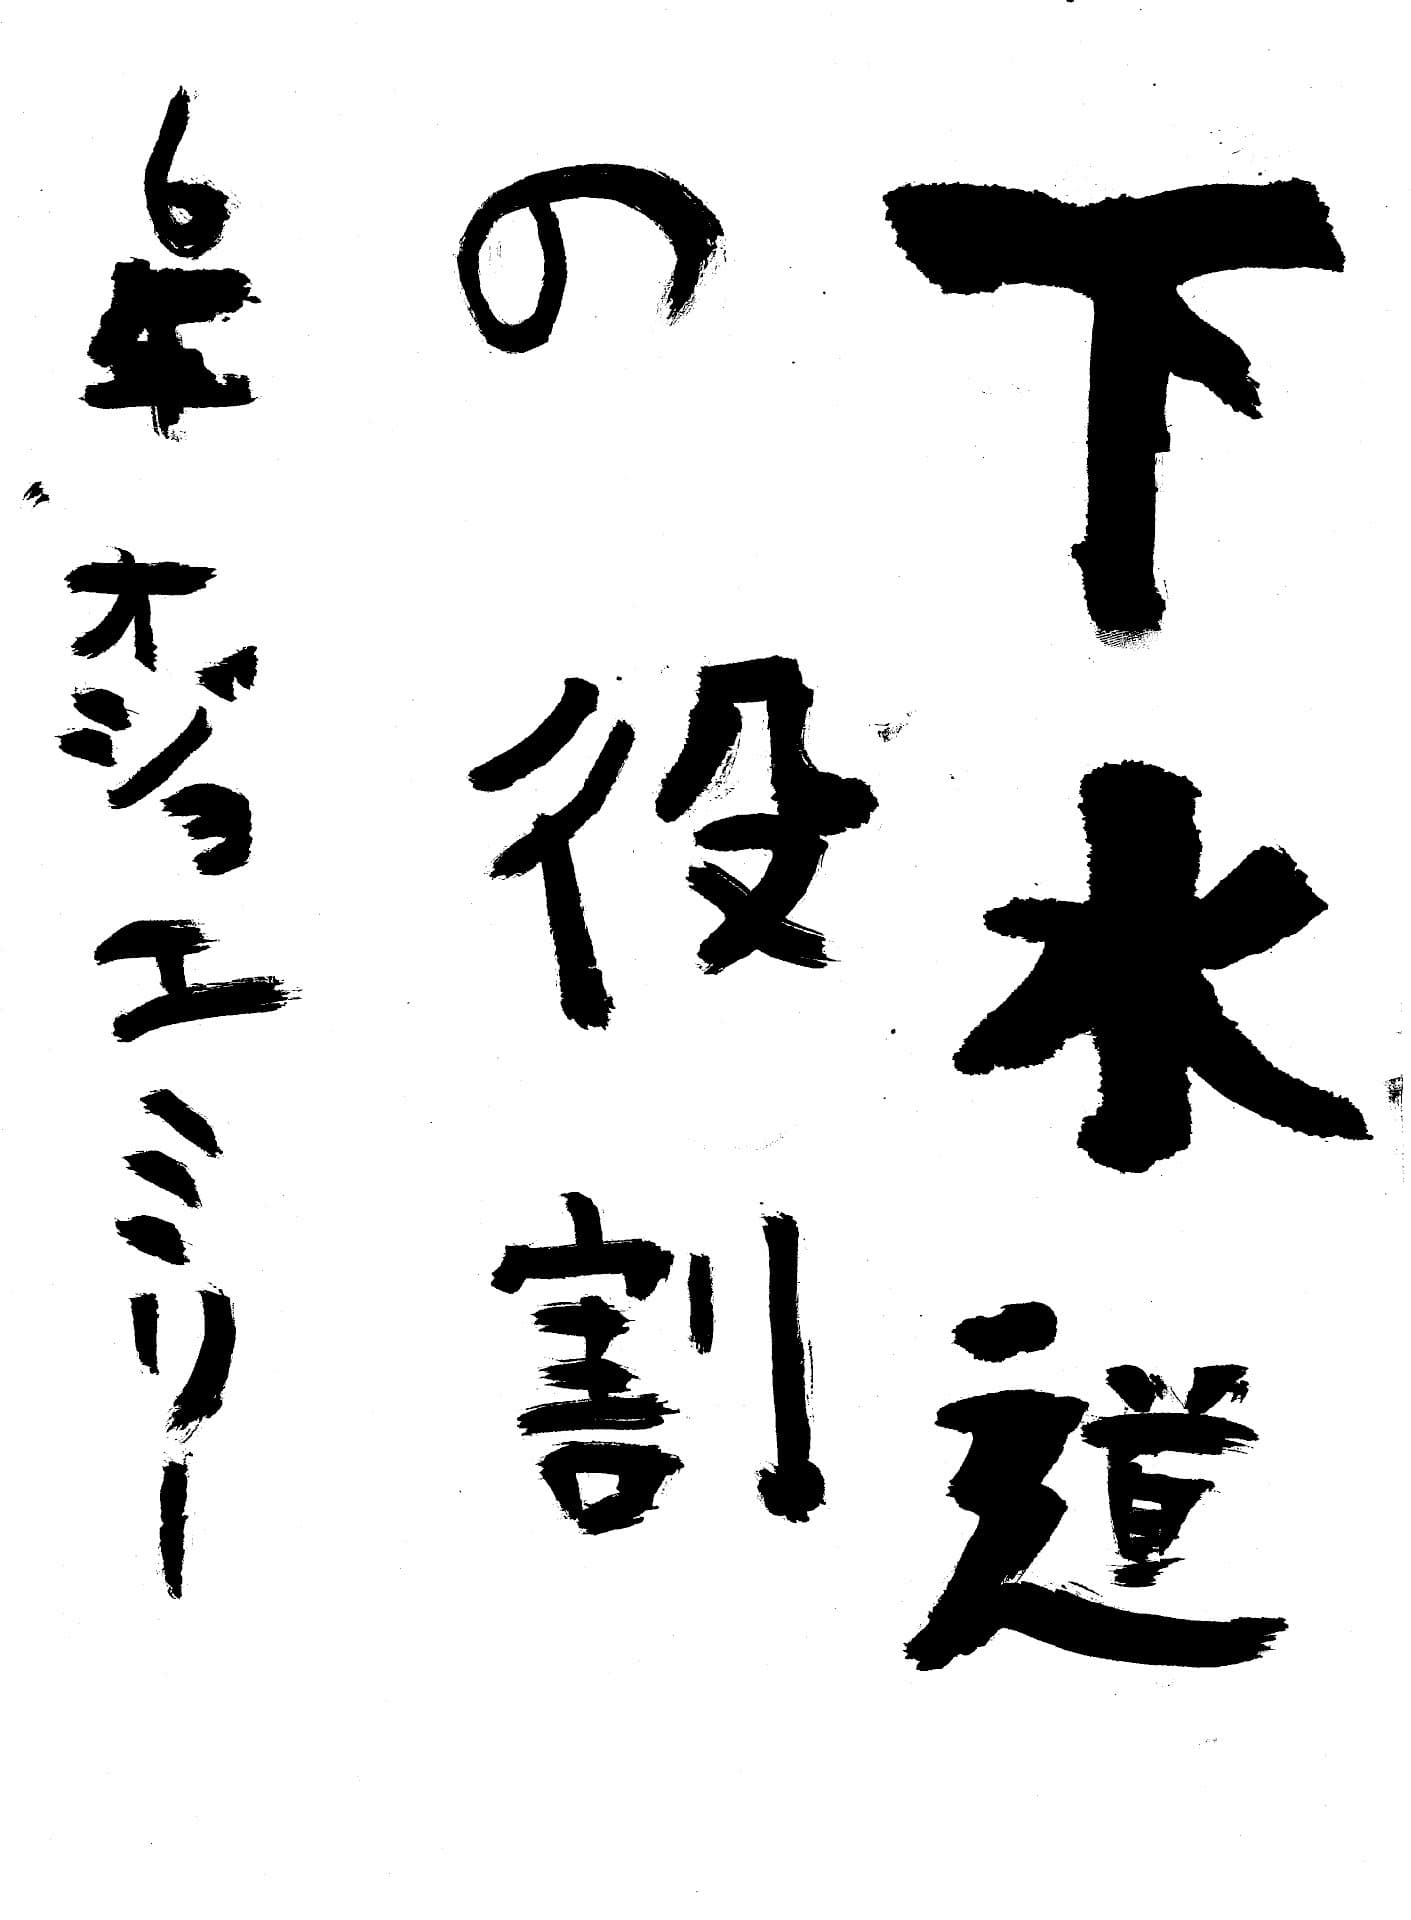 下水道
の役割
6年 オジョエミリー